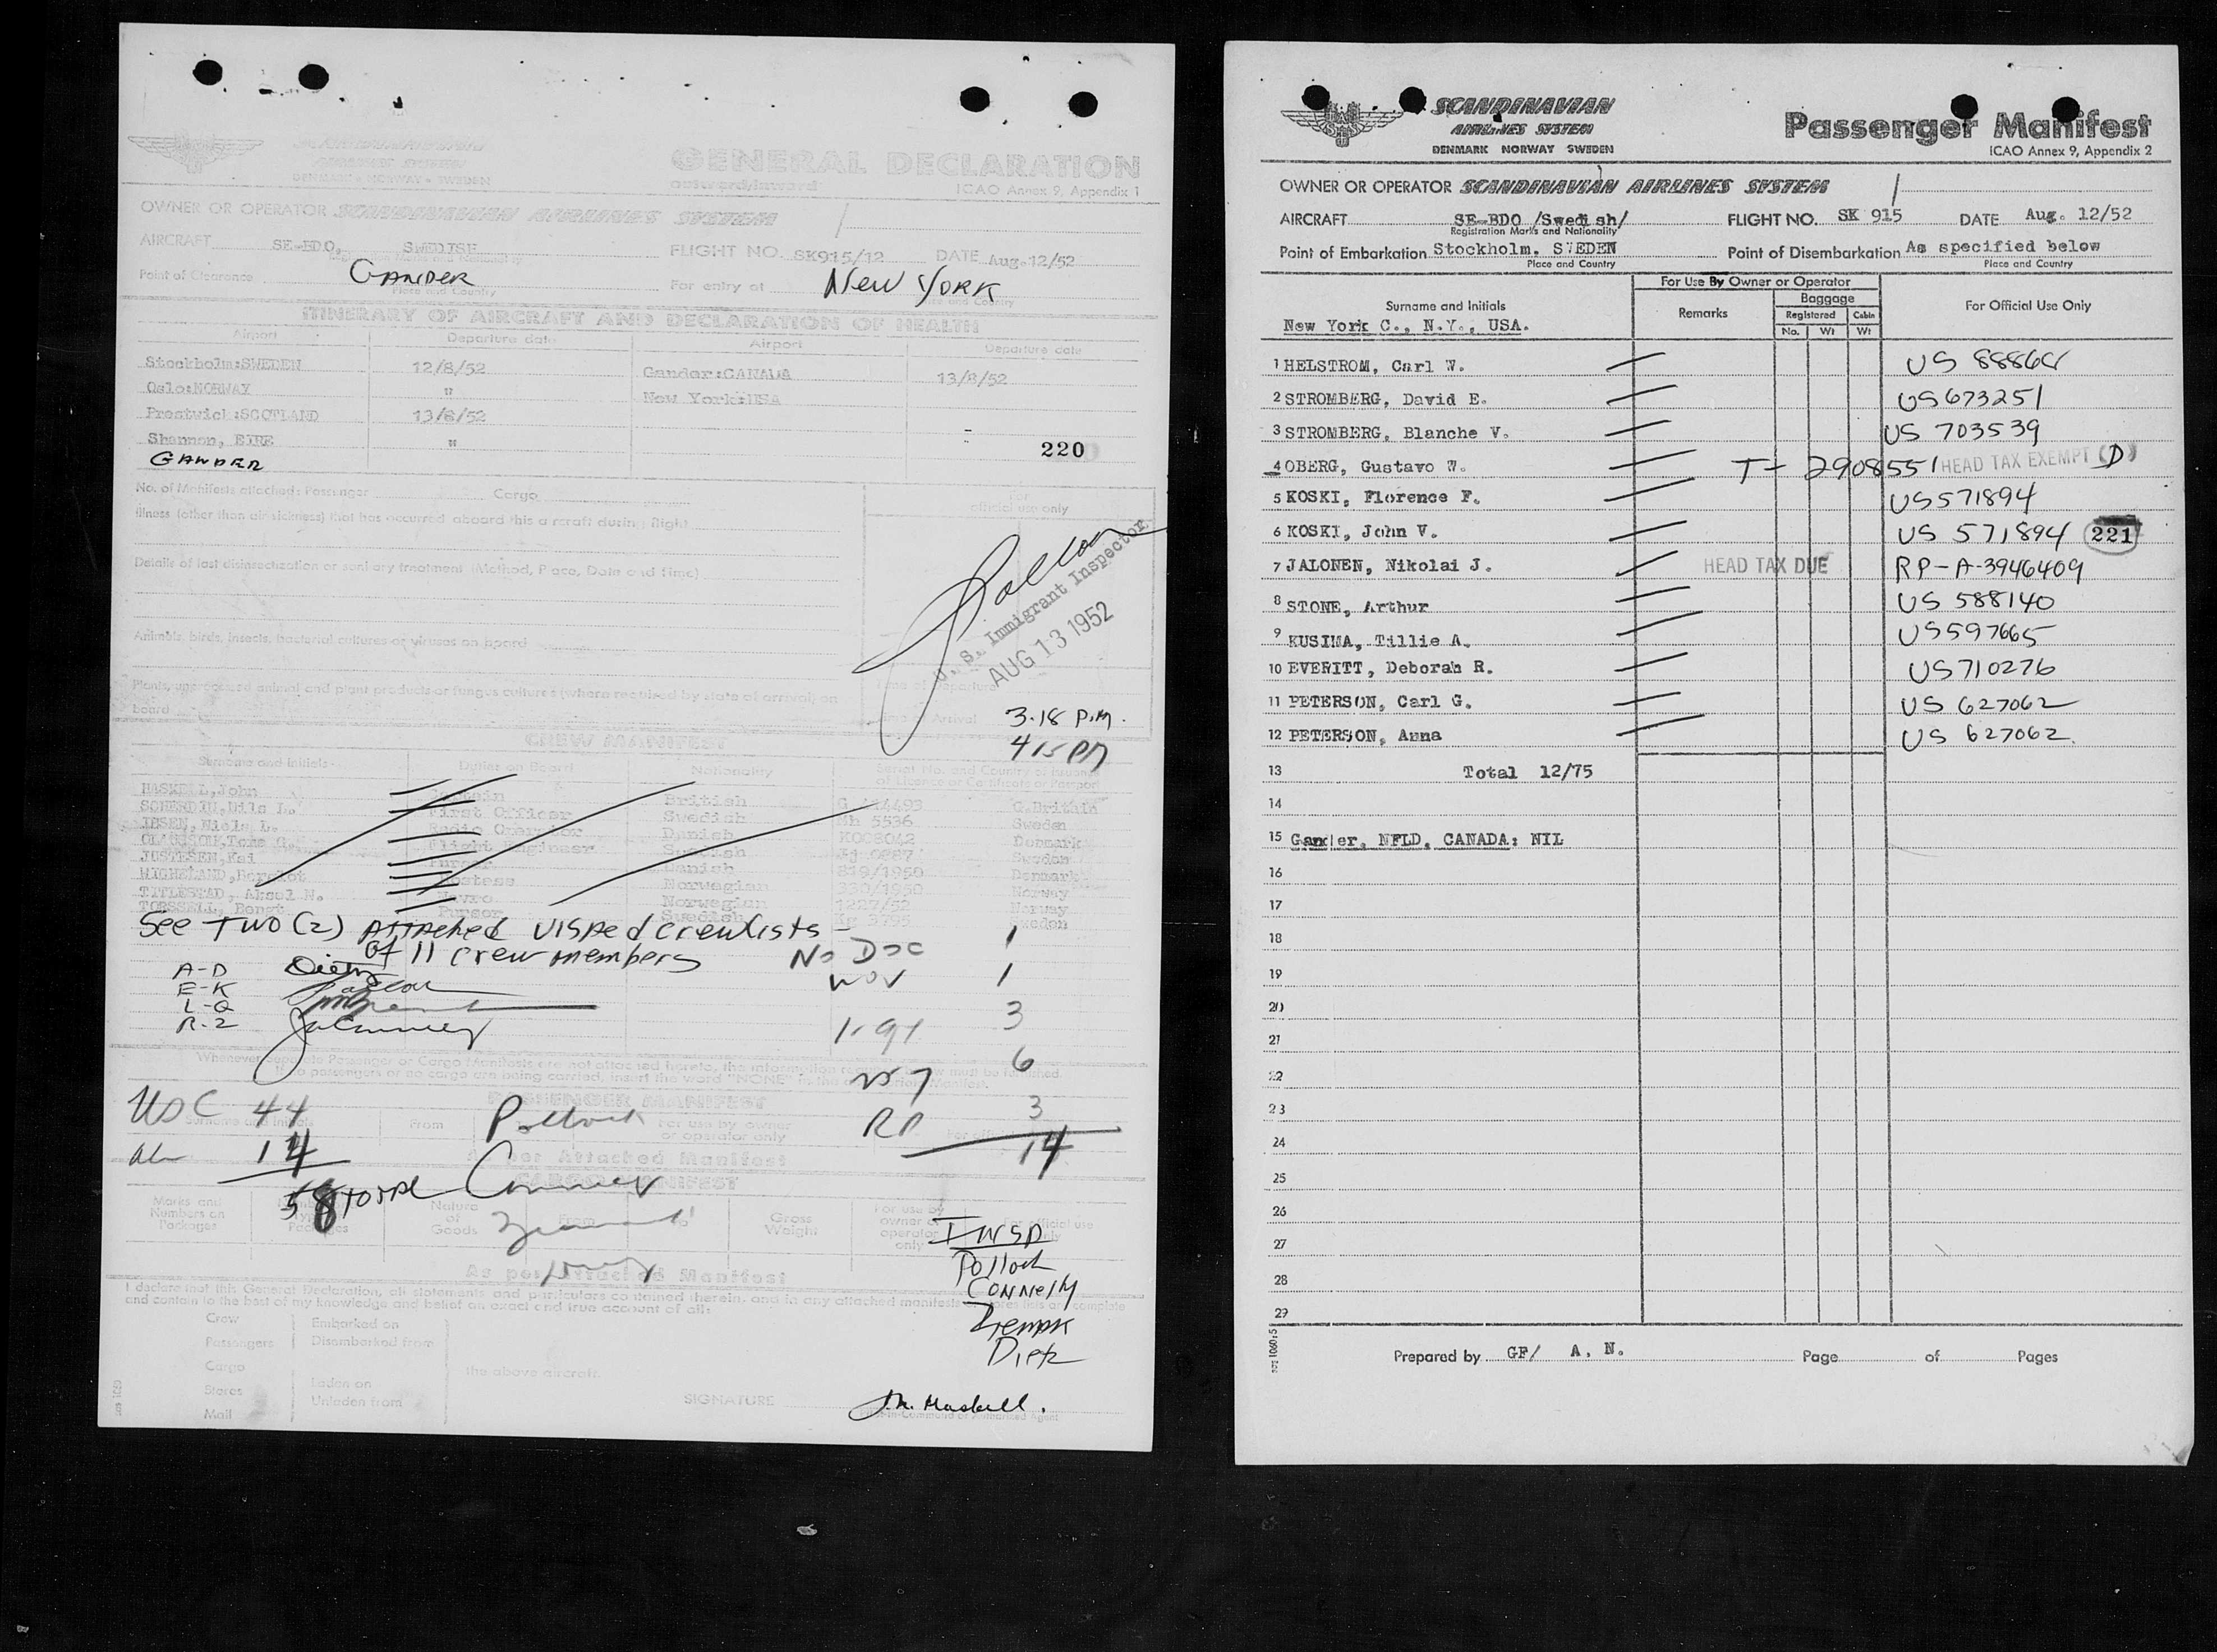 SCANDINAVIAN
AIRLINES SYSTEM
DENMARK • NORWAY • SWEDEN
GENERAL DECLARATION
outward/inward
ICAO Annex 9, Appendix 1
OWNER OR OPERATOR SCANDINAVIAN AIRLINES SYSTEM
AIRCRAFT SE-BDO, SWEDISH FLIGHT NO. SK915/12 DATE Aug. 12/52
Point of Clearance GANDER For entry at NEW YORK
Place and Country
ITINERARY OF AIRCRAFT AND DECLARATION OF HEALTH
Airport Departure date Airport Departure date
Stockholm:SWEDEN 12/8/52 Gander:CANADA 13/8/52
Oslo:NORWAY " New York:USA
Prestwick:SCOTLAND 13/8/52
Shannon, EIRE " 220
GANDER
No. of Manifests attached: Passenger Cargo
For official use only
Illness (other than airsickness) that has occurred aboard this aircraft during flight
Details of last disinsectization or sanitary treatment (Method, Place, Date and Time)
U. S. Immigrant Inspector
AUG 13 1952
Animals, birds, insects, bacterial cultures or viruses on board
Plants, unprocessed animal and plant products or fungus cultures (where required by state of arrival) on board
Time of Departure
Arrival 3.18 P.M.
415 PM
CREW MANIFEST
Surname and Initials Duties on Board Nationality Serial No. and Country of Issuance of Licence or Certificate or Passport
HASKELL, John Captain British G.Britain
First Officer Swedish 5536 Sweden
IBSEN, Niels L. Radio Operator Danish K008042 Denmark
Flight Engineer Swedish Sweden
JUSTESEN, Kai Purser Danish 819/1950 Denmark
Hostess Norwegian Norway
TITLESTAD, Aksel N. Norwegian 1227/52 Norway
TORSSELL, Bengt Purser Swedish Sweden
See TWO (2) ATTACHED VISAED crewlists
of 11 crewmembers No Doc 1
A-D Dietz WOV 1
E-K
L-Q 3
R-Z 6
Whenever separate Passenger or Cargo Manifests are not attached hereto, the information required below must be furnished.
If no passengers or no cargo are being carried, insert the word "NONE" in the appropriate Manifest.
PASSENGER MANIFEST
USC 44 Pollock RP 3
Surname and Initials From For use by owner or operator only
14 14
As per Attached Manifest
58 TOTAL
CARGO MANIFEST
Marks and Numbers on Packages Nature of Goods From To Gross Weight For use by owner or operator only For official use only
INSP
Pollock
CONNELLY
Dietz
As per Attached Manifest
I declare that this General Declaration, all statements and particulars contained therein, and in any attached manifests or stores lists are complete
and contain to the best of my knowledge and belief an exact and true account of all:
Crew Embarked on
Passengers Disembarked from
Cargo the above aircraft.
Stores Laden on
Mail Unladen from
SIGNATURE J.M. Haskell.
Pilot-in-Command or Authorized Agent
SCANDINAVIAN
AIRLINES SYSTEM
DENMARK NORWAY SWEDEN
Passenger Manifest
ICAO Annex 9, Appendix 2
OWNER OR OPERATOR SCANDINAVIAN AIRLINES SYSTEM
AIRCRAFT SE-BDO /Swedish/ FLIGHT NO. SK 915 DATE Aug. 12/52
Registration Marks and Nationality
Point of Embarkation Stockholm, SWEDEN Point of Disembarkation As specified below
Place and Country Place and Country
For Use By Owner or Operator
Surname and Initials Remarks Baggage For Official Use Only
Registered Cabin
No. Wt Wt
New York C., N.Y., USA.
1 HELSTROM, Carl W. US 88868
2 STROMBERG, David E. US 673251
3 STROMBERG, Blanche V. US 703539
4 OBERG, Gustavo W. T- 2908551 HEAD TAX EXEMPT (D)
5 KOSKI, Florence F. US 571894
6 KOSKI, John V. US 571894 221
7 JALONEN, Nikolai J. HEAD TAX DUE RP-A-3946409
8 STONE, Arthur US 588140
9 KUSIMA, Tillie A. US 597665
10 EVERITT, Deborah R. US 710276
11 PETERSON, Carl G. US 627062
12 PETERSON, Anna US 627062
13 Total 12/75
14
15 Gander, NFLD, CANADA: NIL
16
17
18
19
20
21
22
23
24
25
26
27
28
29
Prepared by GF/ A. N. Page of Pages